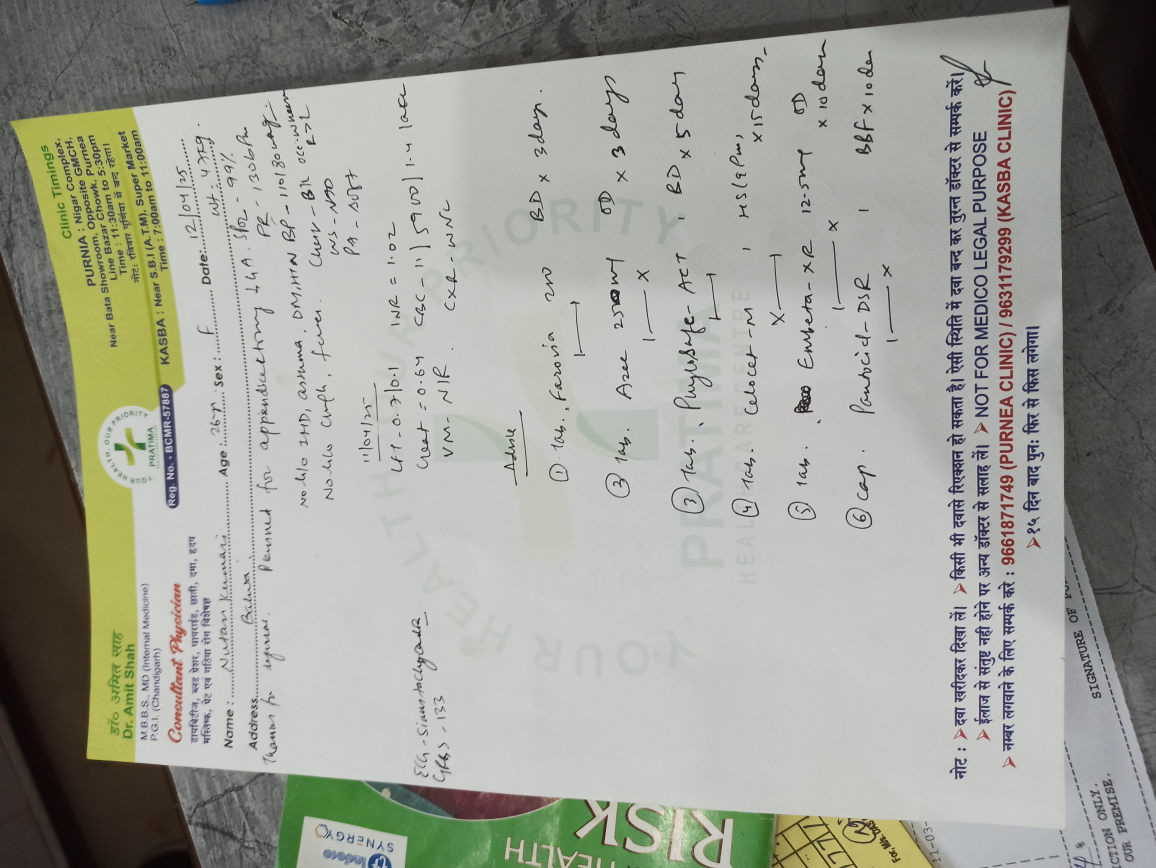 डॉ० अमित साह
Dr. Amit Shah
M.B.B.S., MD (Internal Medicine)
P.G.I. (Chandigarh)
Consultant Physician
डायबिटीज, ब्लड प्रेशर, थायराईड, छाती, दमा, हृदय
मस्तिष्क, पेट एवं गठिया रोग विशेषज्ञ
YOUR HEALTH, OUR PRIORITY
PRATIMA
Reg. No. - BCMR-57887
Clinic Timings
PURNIA : Nigar Complex,
Near Bata Showroom, Opposite GMCH,
Line Bazar Chowk, Purnea
Time : 11:30am to 5:30pm
नोट: रविवार पूर्णिया में बन्द रहेगा।
KASBA : Near S.B.I (A.T.M), Super Market
Time : 7:00am to 11:00am
Name : Nutan Kumari Age : 26yr Sex : F Date: 12/04/25
Address Wt - 47kg.
Thanks for referral. Planned for appendicectomy ↓ GA SPO2 - 99%
PR - 130bpm
No h/o IHD, asthma, DM/HTN BP - 110/80 mmHg
No h/o cough, fever. Chest - B/L occ. wheeze
R>L
P/A - soft
11/04/25
LFT - 0.7/0.1 INR = 1.02
Creat = 0.64 CBC - 11/5900/1.4 lakh
VM - N/R. CXR - WNL
ECG - Sinus tachycardia
GRBS - 133
Advise
① Tab. Farovia 200 BD x 3 days.
② Tab. Azee 250mg OD x 3 days
1 — x
③ Tab. Phylosafe-ACT BD x 5 day
④ Tab. Celocet-M HS (9pm) x 15 days
x — 1
⑤ Tab. Embeta-XR 12.5mg OD x 10 days
1 — x
⑥ Cap. Panbocid-DSR BBF x 10 days
1 — x
YOUR HEALTH OUR PRIORITY
PRATIMA
HEALTHCARE CENTRE
नोट : ➤ दवा खरीदकर दिखा लें। ➤ किसी भी दवासे रिएक्शन हो सकता है। ऐसी स्थिति में दवा बन्द कर तुरन्त डॉक्टर से सम्पर्क करें।
➤ ईलाज से संतुष्ट नही होने पर अन्य डॉक्टर से सलाह लें। ➤ NOT FOR MEDICO LEGAL PURPOSE
➤ नम्बर लगवाने के लिए सम्पर्क करे : 9661871749 (PURNEA CLINIC) / 9631179299 (KASBA CLINIC)
➤ १५ दिन बाद पुनः फिर से फिस लगेगा।
Indoco
SYNERGY
HEALTH
RISK
SIGNATURE OF
CTION ONLY.
UR PREMISE.